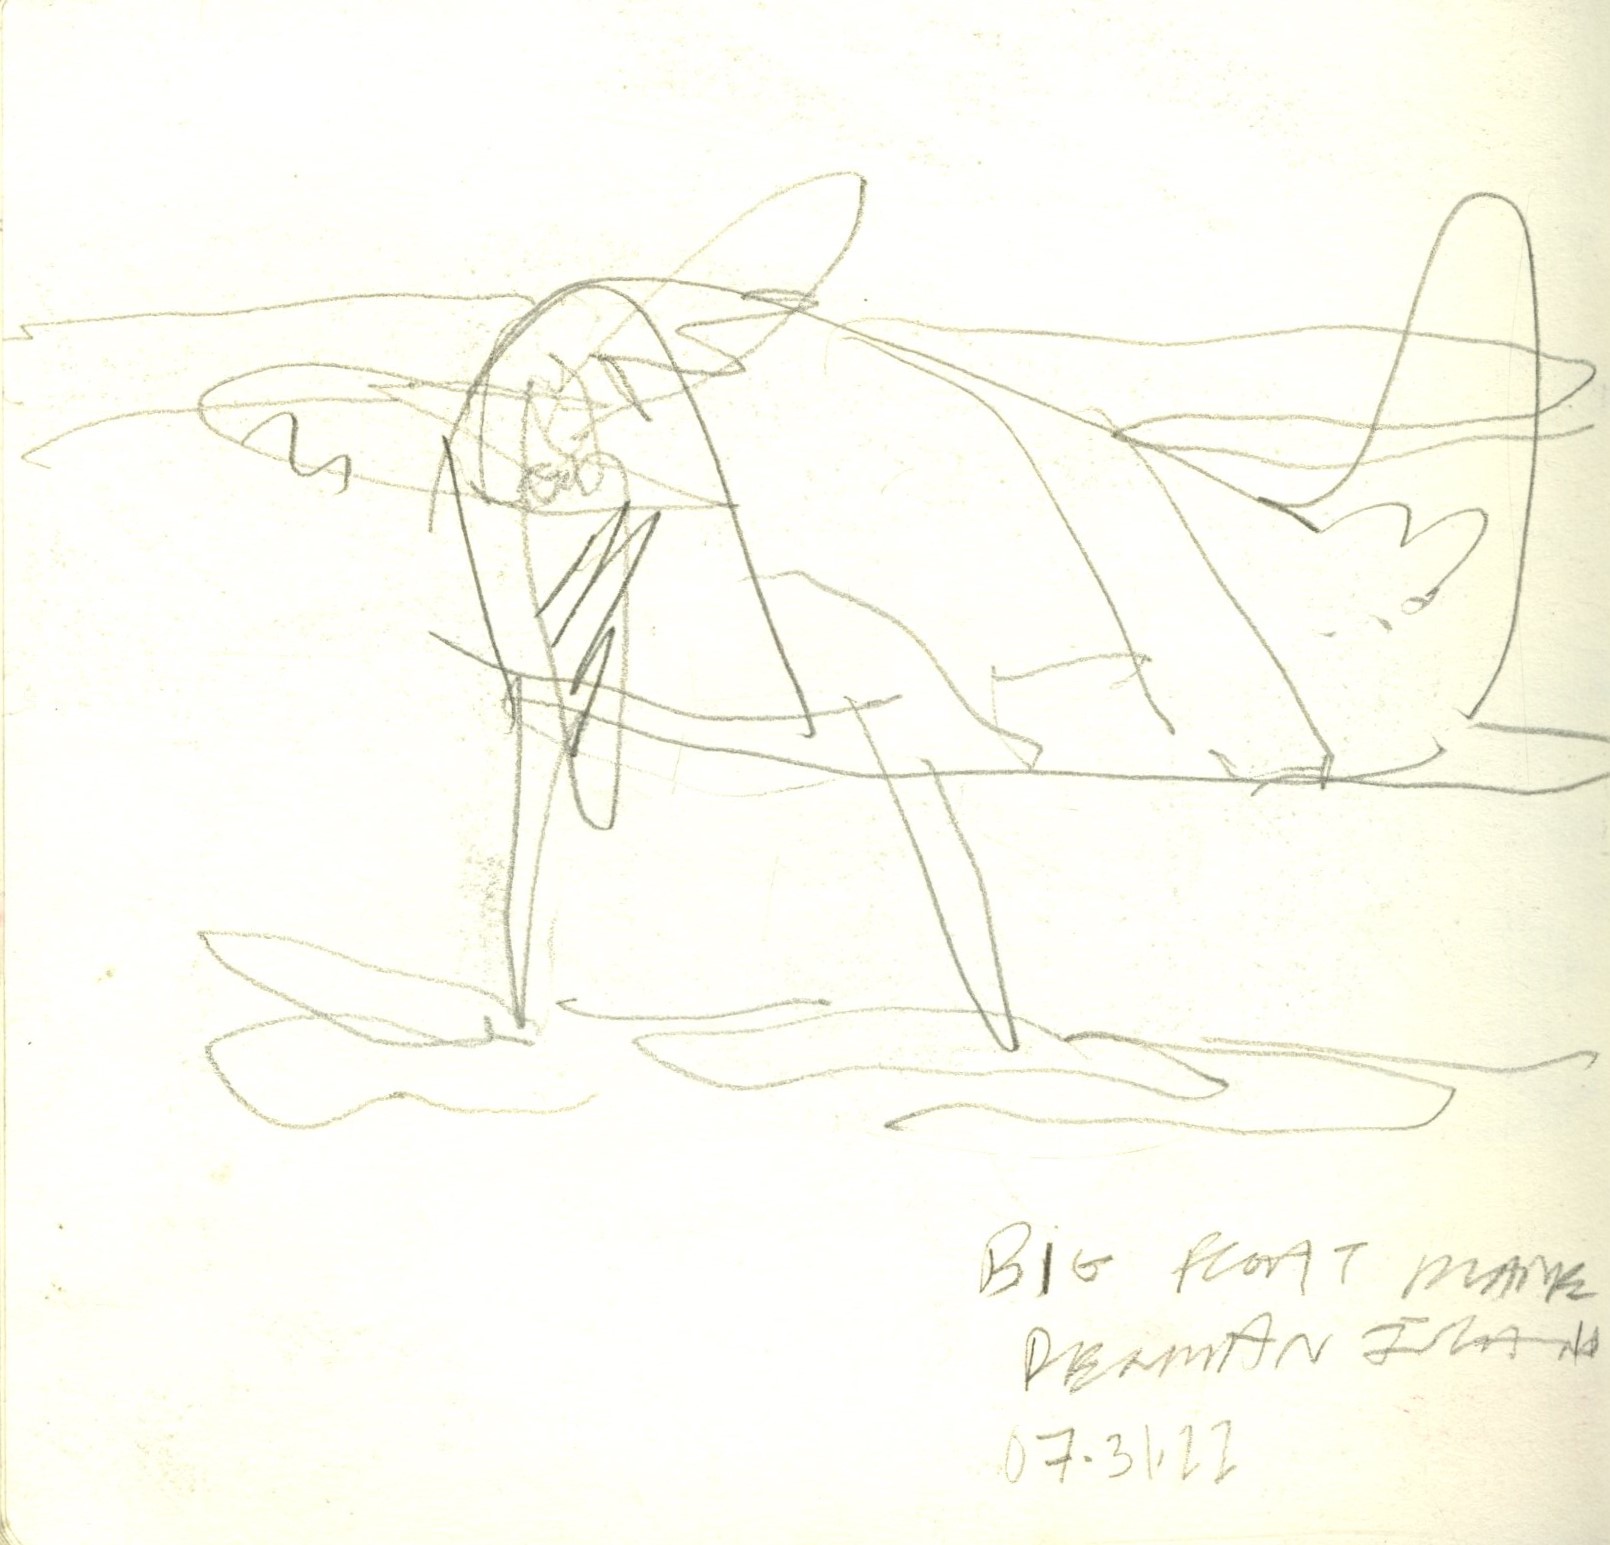 BIG FLOAT PLANE
DENMAN ISLAND
07.31.22